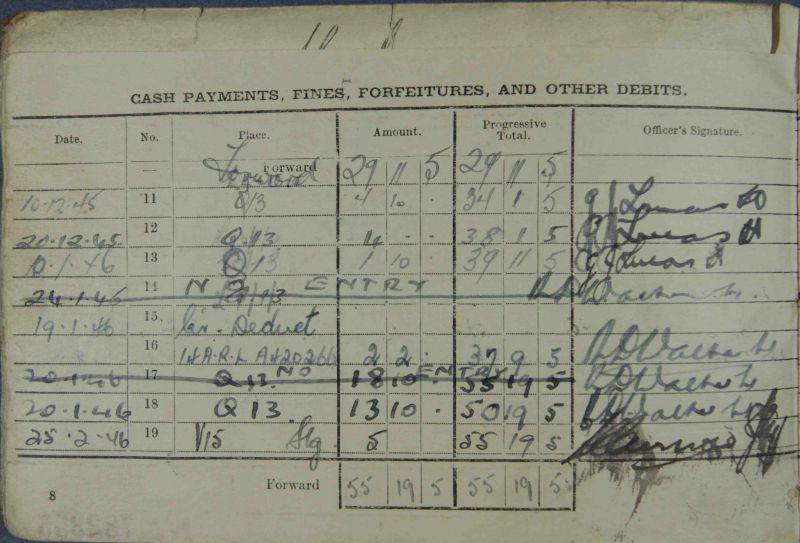 CASH PAYMENTS, FINES, FORFEITURES, AND OTHER DEBITS.
Date. No. Place. Amount. Progressive Total. Officer's Signature.
— Forward 29 11 5 29 11 5
10.12.45 11 Q13 4 10 . 34 1 5
20.12.45. 12 Q.13 4 - - 38 1 5
10.1.46 13 Q13 1 10 . 39 11 5
24.1.46 14 NO ENTRY
19.1.46 15. Deduct
16 2 2 . 37 9 5
20.1.46 17 Q13. NO ENTRY 18 10 . 55 19 5
20.1.46 18 Q13. 13 10 . 50 19 5
25.2.46 19 V15 Stg. 5 55 19 5
8 Forward 55 19 5 55 19 5